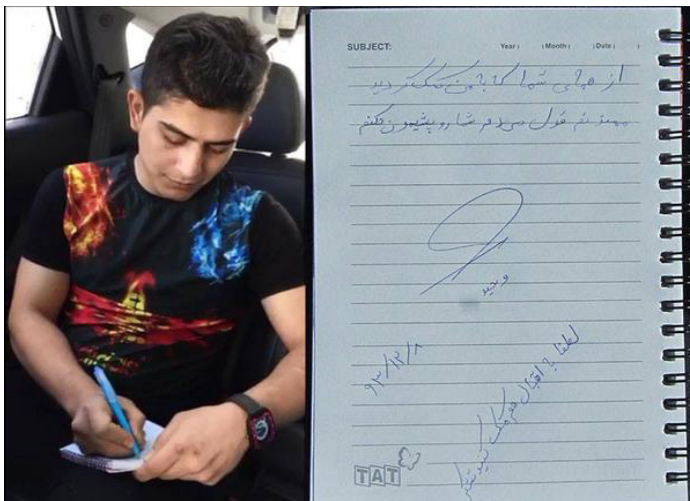 SUBJECT:
Year ( ) Month ( ) Date ( )
از همه‌ی شما که به من کمک کردید
ممنونم قول میدم شما رو پشیمون نکنم
وحید
۹۳/۱۲/۸
لطفا به اقبال هم کمک کنید
TAT